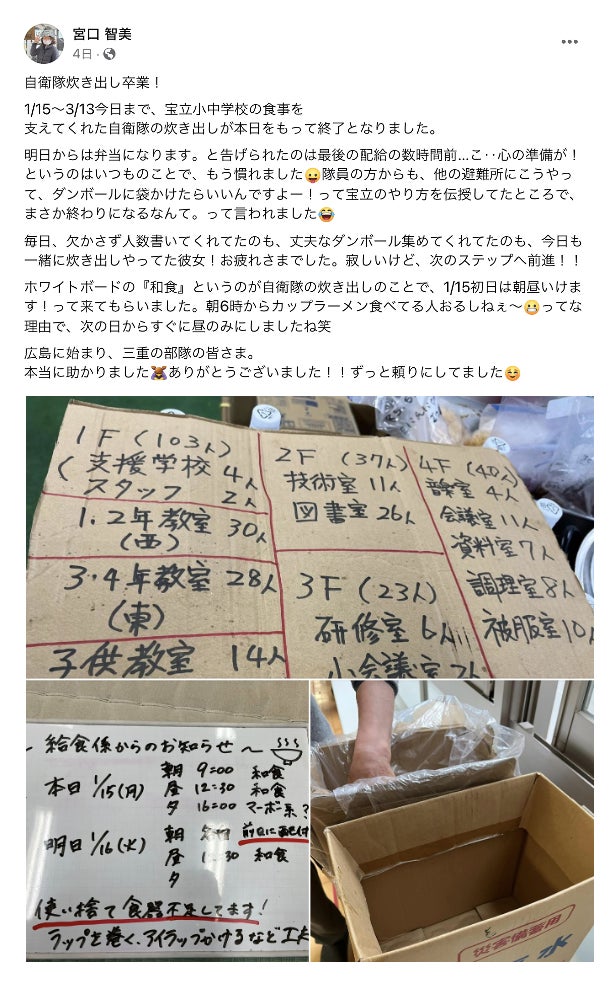 宮口 智美
4日
自衛隊炊き出し卒業！
1/15〜3/13今日まで、宝立小中学校の食事を
支えてくれた自衛隊の炊き出しが本日をもって終了となりました。
明日からは弁当になります。と告げられたのは最後の配給の数時間前…こ‥心の準備が！
というのはいつものことで、もう慣れました😜隊員の方からも、他の避難所にこうやっ
て、ダンボールに袋かけたらいいんですよー！って宝立のやり方を伝授してたところで、
まさか終わりになるなんて。って言われました😂
毎日、欠かさず人数書いてくれてたのも、丈夫なダンボール集めてくれてたのも、今日も
一緒に炊き出しやってた彼女！お疲れさまでした。寂しいけど、次のステップへ前進！！
ホワイトボードの『和食』というのが自衛隊の炊き出しのことで、1/15初日は朝昼いけま
す！って来てもらいました。朝6時からカップラーメン食べてる人おるしねぇ〜😬ってな
理由で、次の日からすぐに昼のみにしましたね笑
広島に始まり、三重の部隊の皆さま。
本当に助かりました🙇ありがとうございました！！ずっと頼りにしてました☺️
1F (103人)
(支援学校 4人
スタッフ 2人
1.2年教室 30人
(西)
3・4年教室 28人
(東)
子供教室 14人
2F (37人)
技術室 11人
図書室 26人
3F (23人)
研修室 6人
小会議室
4F (40人)
音楽室 4人
会議室 11人
資料室 7人
調理室 8人
被服室 10人
〜 給食係からのお知らせ 〜
本日 1/15(月) 朝 9:00 和食
昼 12:30 和食
夕 16:00 マーボ系？
明日 1/16(火) 朝 前日に配付
昼 和食
夕
使い捨て食器不足してます！
ラップを巻く、アイラップかけるなど工夫
災害備蓄用
水